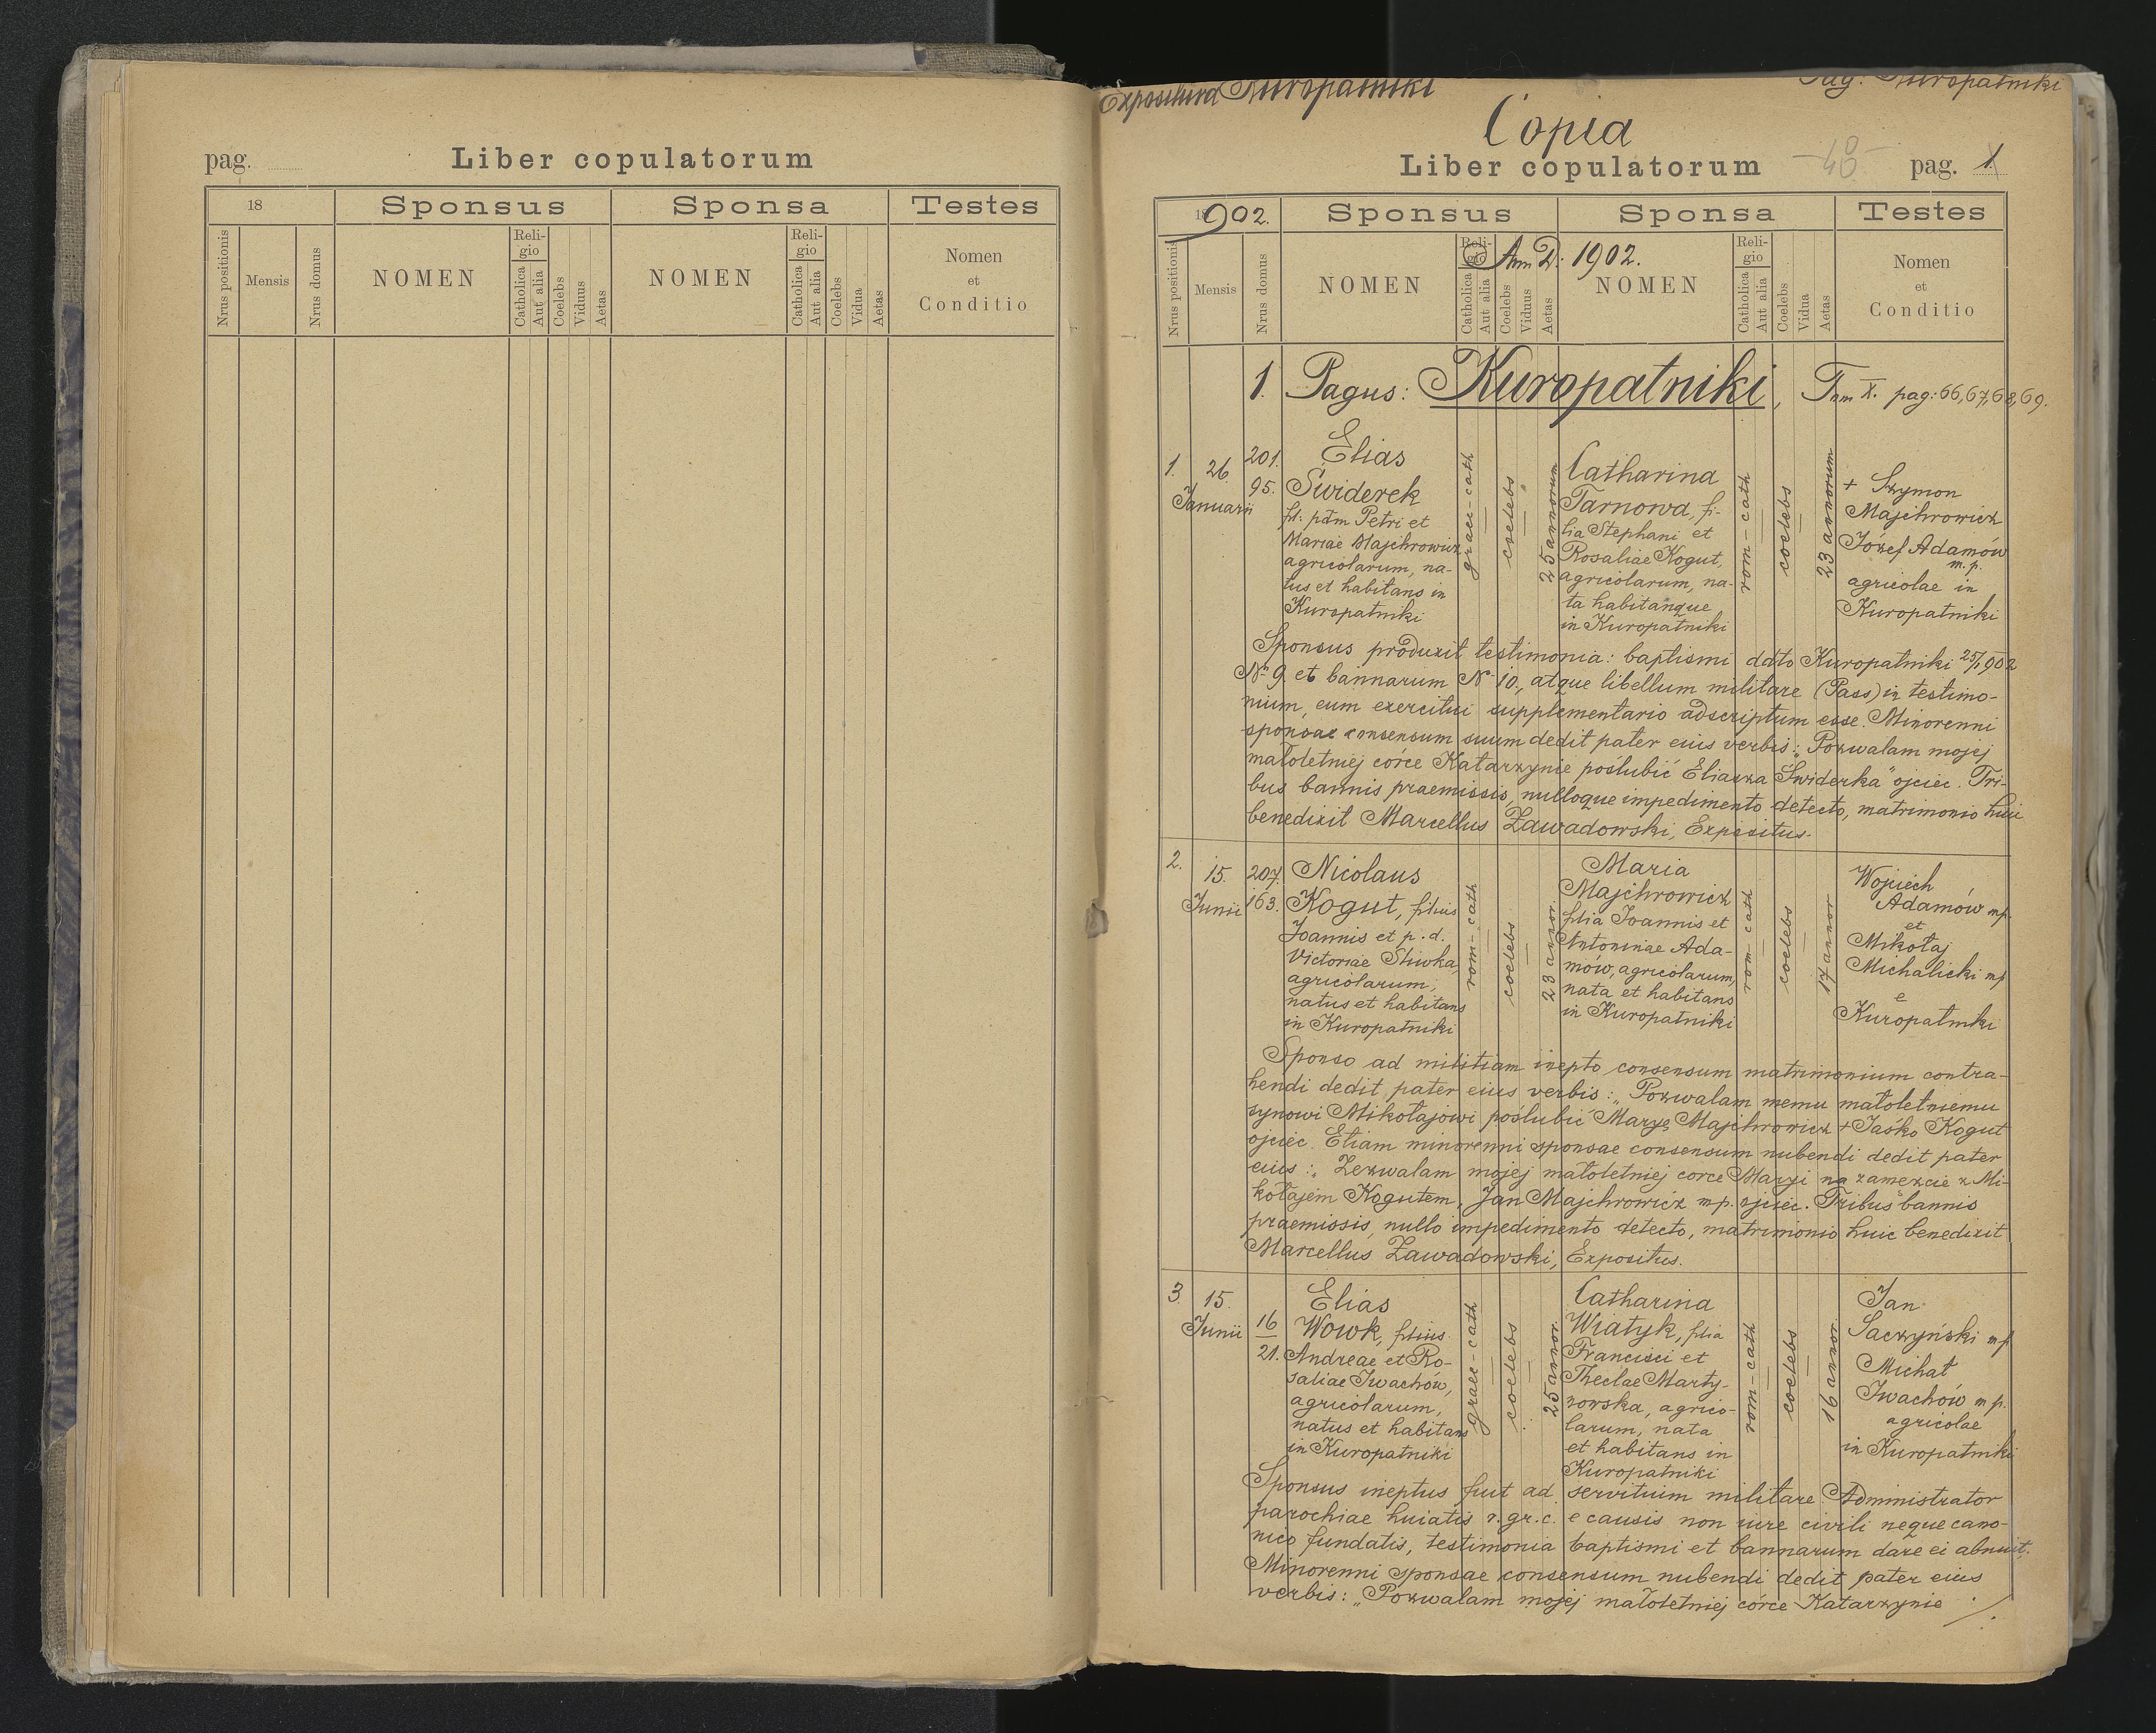 pag.
Liber copulatorum
18
Sponsus
Sponsa
Testes
Nrus positionis
Mensis
Nrus domus
NOMEN
Reli-
gio
Catholica
Aut alia
Coelebs
Viduus
Aetas
NOMEN
Reli-
gio
Catholica
Aut alia
Coelebs
Vidua
Aetas
Nomen
et
Conditio
Expositura Kuropatniki
Pag: Kuropatniki
Copia
Liber copulatorum
48
pag. 1
1902.
Sponsus
Sponsa
Testes
Ann D: 1902.
Nrus positionis
Mensis
Nrus domus
NOMEN
Reli-
gio
Catholica
Aut alia
Coelebs
Viduus
Aetas
NOMEN
Reli-
gio
Catholica
Aut alia
Coelebs
Vidua
Aetas
Nomen
et
Conditio
1. Pagus: Kuropatniki, Tom X. pag: 66, 67, 68, 69.
1.
26
Januarii
201.
95.
Elias
Świderek
fil: pdm Petri et
Mariae Majchrowicz
agricolarum, na-
tus et habitans in
Kuropatniki
graec-cath
coelebs
25 annorum
Catharina
Tarnowa, fi-
lia Stephani et
Rosaliae Kogut,
agricolarum, na-
ta habitanque
in Kuropatniki
rom-cath
coelebs
23 annorum
+ Szymon
Majchrowicz
Józef Adamów
m.p.
agricolae in
Kuropatniki
Sponsus produxit testimonia: baptismi ddto Kuropatniki 25/1 902
No 9. et bannarum No 10., atque libellum militare (Pass) in testimo-
nium, eum exercitui supplementario adscriptum esse. Minorenni
sponsae consensum suum dedit pater eius verbis: „Pozwalam mojej
małoletniej córce Katarzynie poślubić Eliasza Świderka" ojciec. Tri-
bus bannis praemissis, nulloque impedimento detecto, matrimonio huic
benedixit Marcellus Zawadowski, Expositus.
2.
15.
Junii
207.
163.
Nicolaus
Kogut, filius
Joannis et p.d.
Victoriae Śliwka,
agricolarum,
natus et habitans
in Kuropatniki
rom-cath
coelebs
23 annor.
Maria
Majchrowicz
filia Joannis et
Antoninae Ada-
mów, agricolarum,
nata et habitans
in Kuropatniki
rom-cath
coelebs
17 annor
Wojciech
Adamów mp.
et
Mikołaj
Michalicki mp
e
Kuropatniki
Sponso ad militiam inepto consensum matrimonium contra-
hendi dedit pater eius verbis: „Pozwalam memu małoletniemu
synowi Mikołajowi poślubić Maryę Majchrowicz + Jaśko Kogut
ojciec. Etiam minorenni sponsae consensum nubendi dedit pater
eius: „Zezwalam mojej małoletniej corce Maryi na zamęzcie z Mi-
kołajem Kogutem, Jan Majchrowicz mp. ojciec. Tribus bannis
praemissis, nullo impedimento detecto, matrimonio huic benedixit
Marcellus Zawadowski, Expositus.
3.
15.
Junii
16
21.
Elias
Wowk, filius
Andreae et Ro-
saliae Iwachów,
agricolarum,
natus et habitans
in Kuropatniki
graec-cath
coelebs
25 annor.
Catharina
Wiatyk, filia
Francisci et
Theclae Marty-
nowska, agrico-
larum, nata
et habitans in
Kuropatniki
rom-cath
coelebs
16 annor.
Jan
Saczyński mp.
Michał
Iwachów m p.
agricolae
in Kuropatniki
Sponsus ineptus fuit ad servitium militare. Administrator
parochiae huiatis r. gr. c. e causis non iure civili neque cano-
nico fundatis, testimonia baptismi et bannarum dare ei abnuit.
Minorenni sponsae consensum nubendi dedit pater eius
verbis: „Pozwalam mojej małoletniej córce Katarzynie ./.